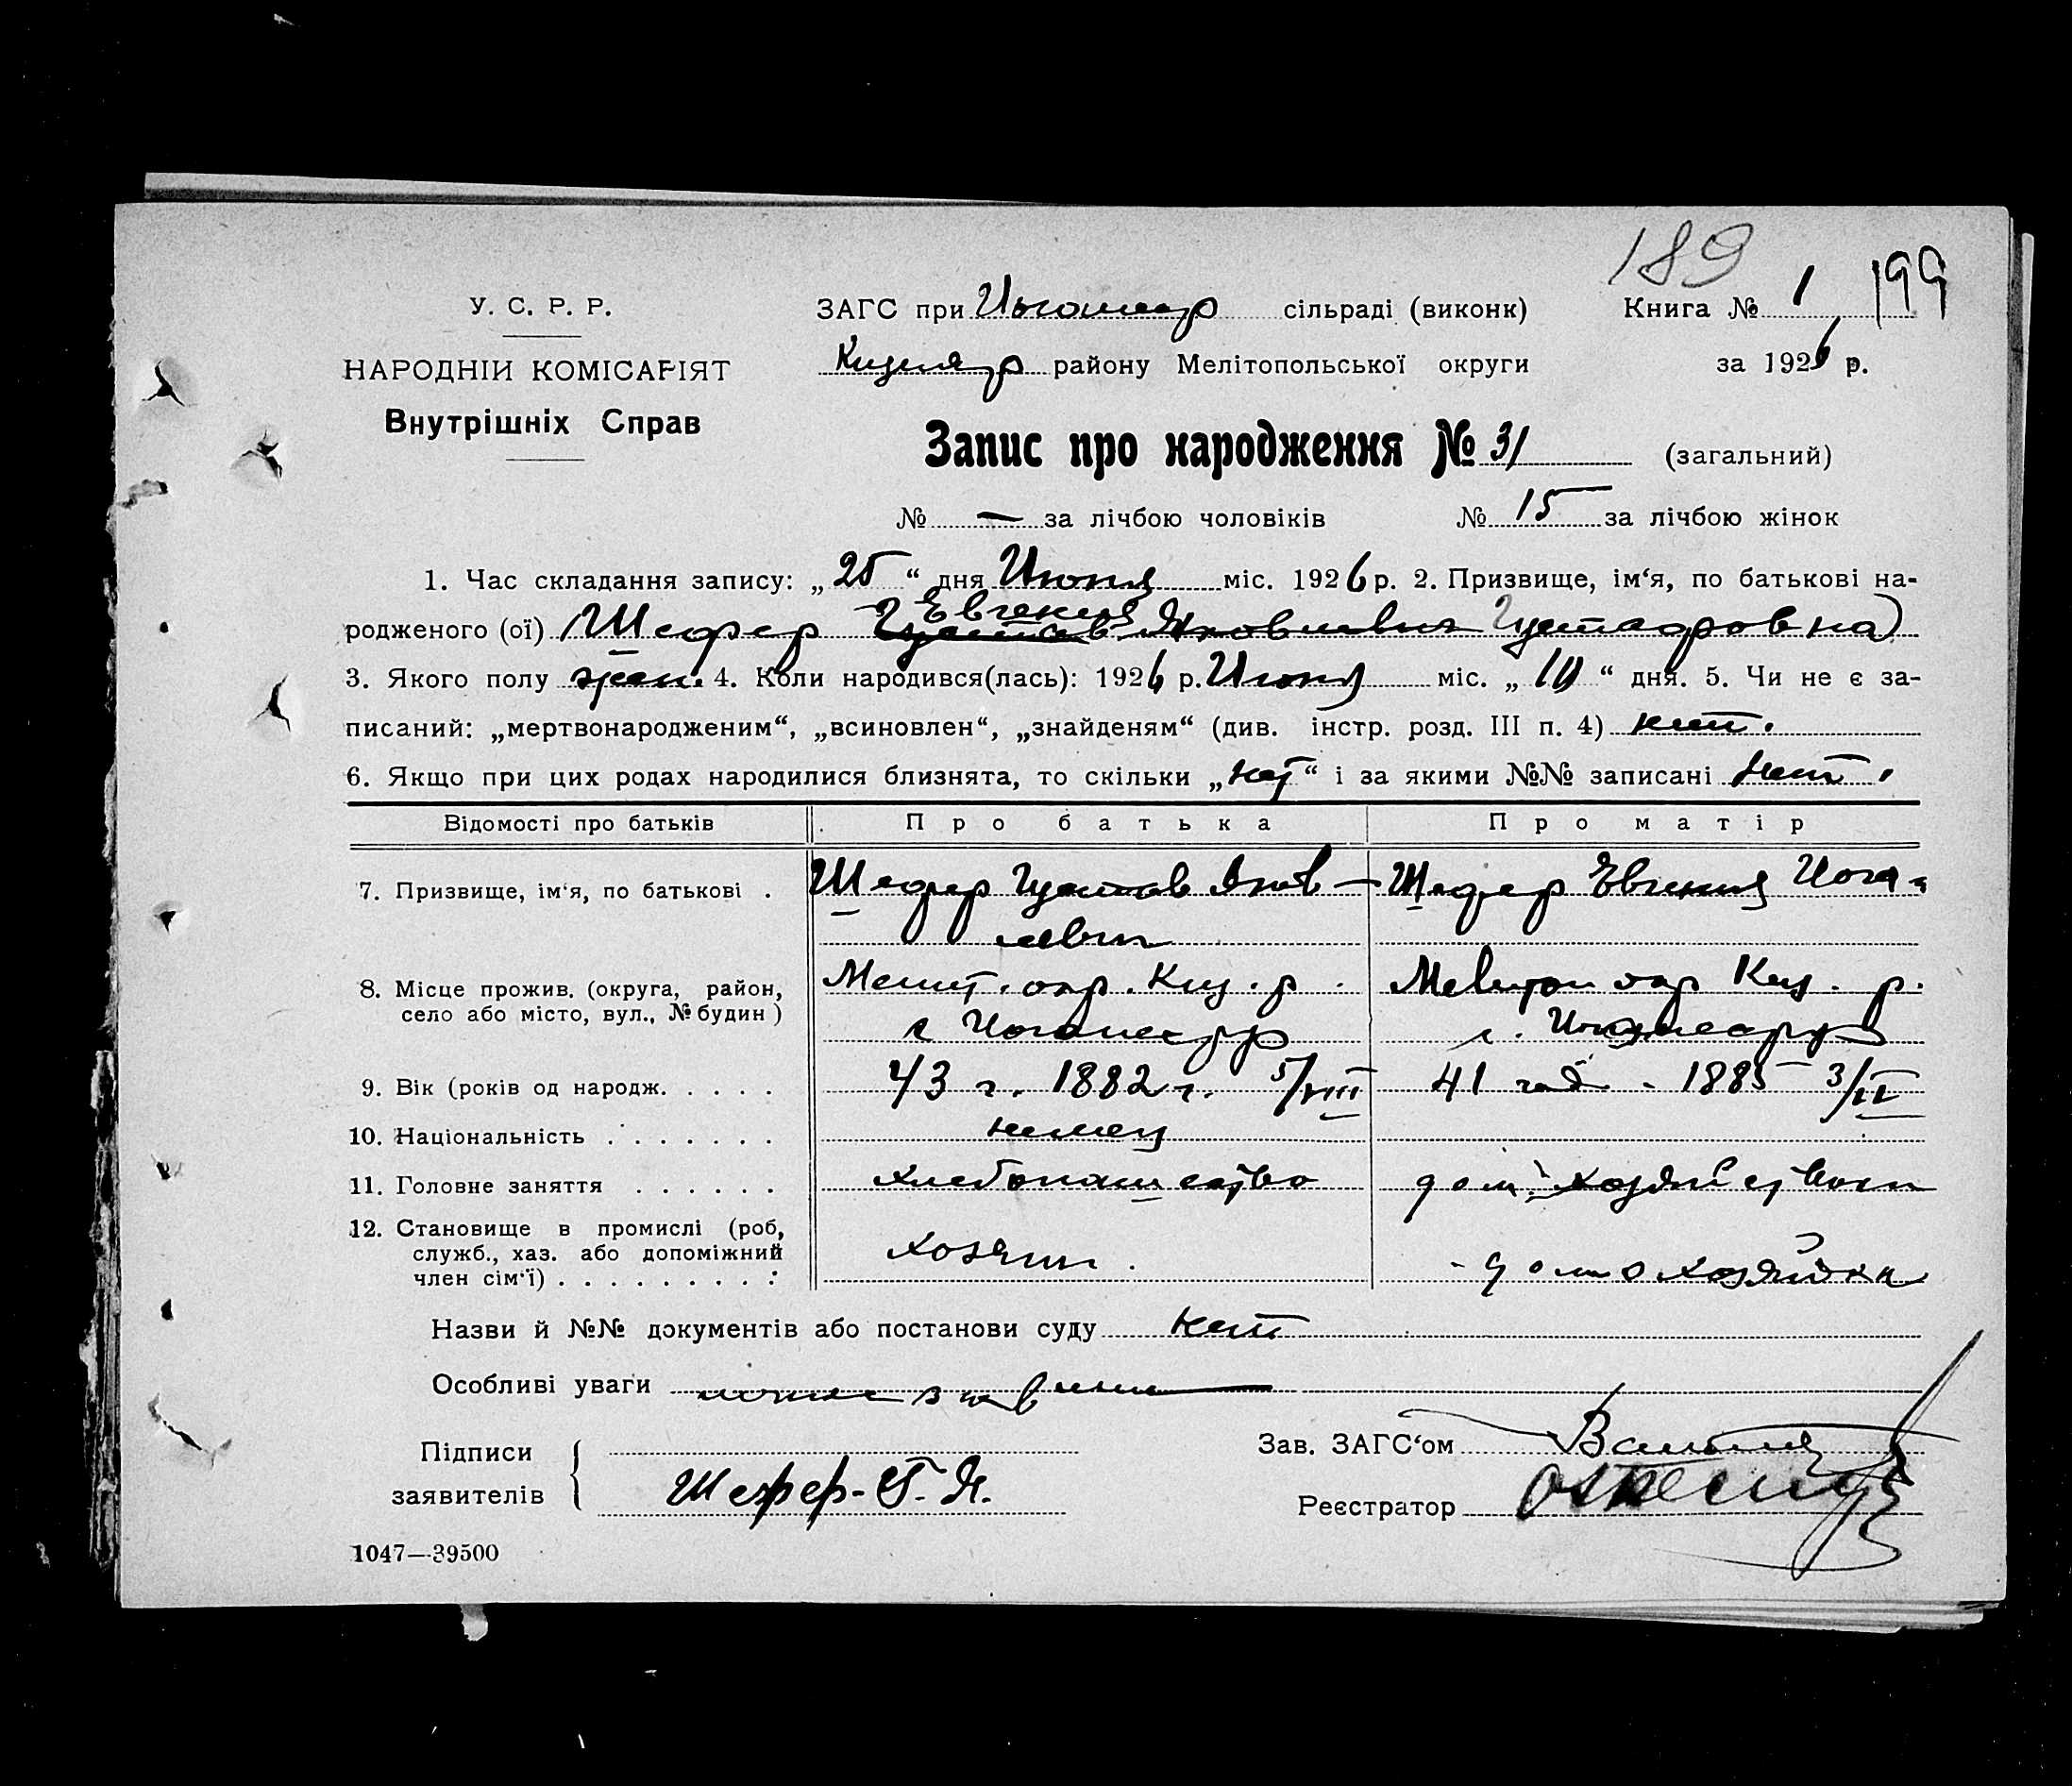 189
У. С. Р. Р. ЗАГС при сільраді (виконк) Книга № 1 199
НАРОДНІЙ КОМІСАРІЯТ району Мелітопольської округи за 1926 р.
Внутрішніх Справ
Запис про народження № 31 (загальний)
№ — за лічбою чоловіків № 15 за лічбою жінок
1. Час складання запису: „25“ дня Июня міс. 1926 р. 2. Призвище, ім‘я, по батькові на-
Евгения
родженого (ої) Шефер Густав Яковлевич Густавовна
3. Якого полу жен. 4. Коли народився(лась): 1926 р. Июня міс. „10“ дня. 5. Чи не є за-
писаний: „мертвонародженим“, „всиновлен“, „знайденям“ (див. інстр. розд. III п. 4) нет.
6. Якщо при цих родах народилися близнята, то скільки „нет“ і за якими №№ записані нет.
Відомості про батьків Про батька Про матір
7. Призвище, ім‘я, по батькові . Шефер Густав Яков- Шефер Евгения
левич
8. Місце прожив. (округа, район, Мелит. окр. Киз. р. Мелитоп окр Киз. р.
село або місто, вул., № будин) с с.
9. Вік (років од народж. . . . . 43 г. 1882 г. 5/VIII 41 год. 1885 3/IV
10. Національність . . . . . . . немец
11. Головне заняття . . . . . . хлебопашество дом.
12. Становище в промислі (роб, хозяин. домохозяйка
служб., хаз. або допоміжний
член сім‘ї) . . . . . . . . . :
Назви й №№ документів або постанови суду нет
Особливі уваги
Підписи Зав. ЗАГС‘ом
заявителів Шефер-Г. Я. Реєстратор
1047—39500